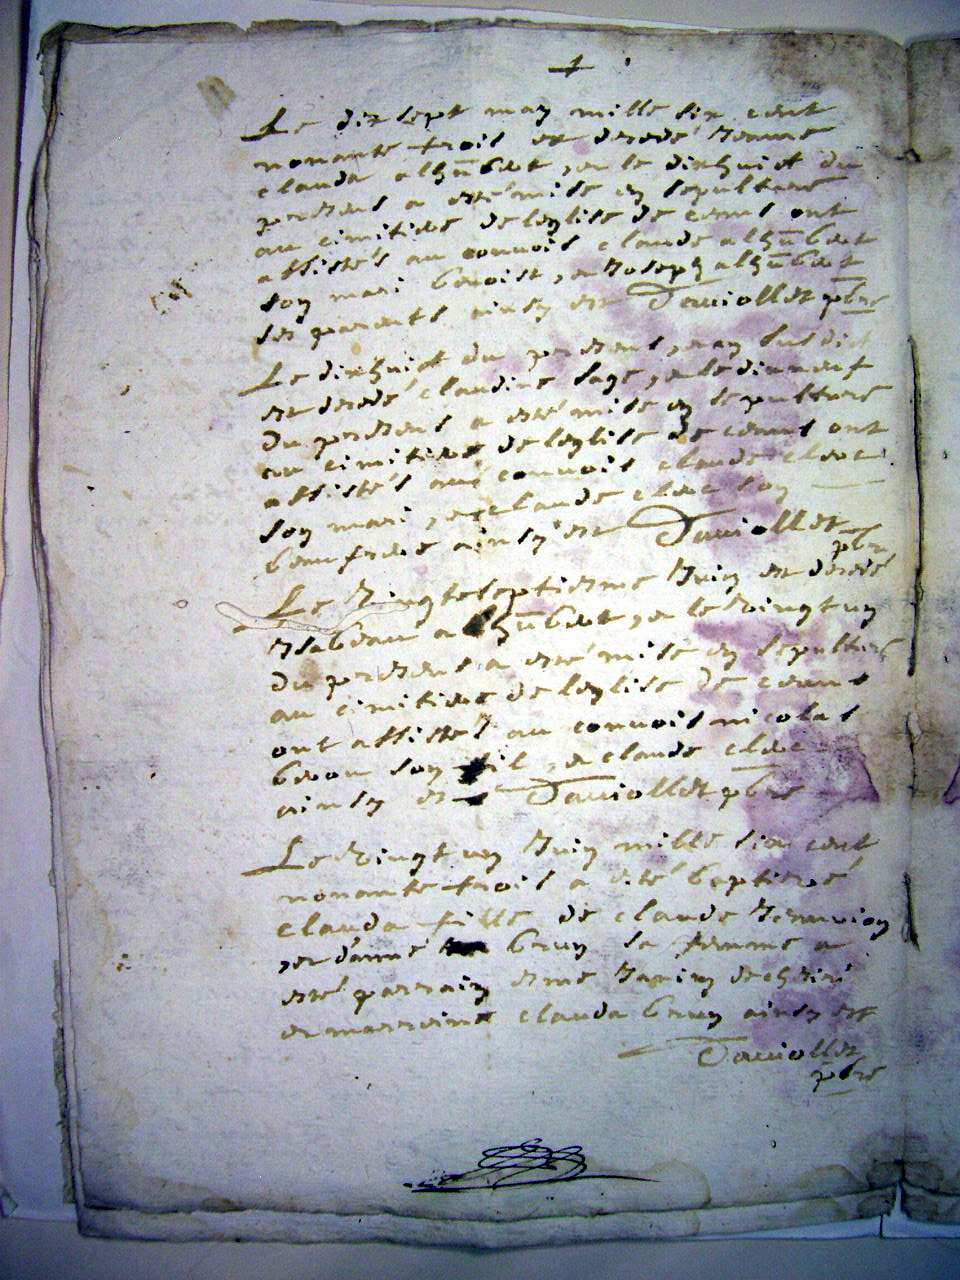 Le dix sept may mille six cent
nonante trois est decedé Jenne
clauda alhũbert, et le dixhuict du
present a esté mise en sepulture
au cimitiere de leglise de cerns ont
assistés au convois claude alhũbert
son mari benoist, et Joseph alhũbert
ses parents ainsy est Davioller pbre
Le dixhuict du present, may susdict
est decedé claudine sage, et le dixneuf
du present a esté mise en sepulture
au cimitiere de leglise de cerns ont
assistés au convois claude clerc
son mari, et claude clerc son
beaufrere ainsy est Daviollet
pbre
Le vingtseptiesme Juin est decedé
Isabeau alhũbert, et le vingt un
du present a esté mise en sepulture
au cimitiere de leglise de cerns
ont assistés au convois nicolas
son fil, et claude clerc
ainsy est Daviollet pbre
Le vingt un Juin mille six cent
nonante trois a esté baptisée
clauda fille de claude
et danne brun sa femme a
esté parrain esme
et marreine clauda brun ainsy est
Daviollet
pbre